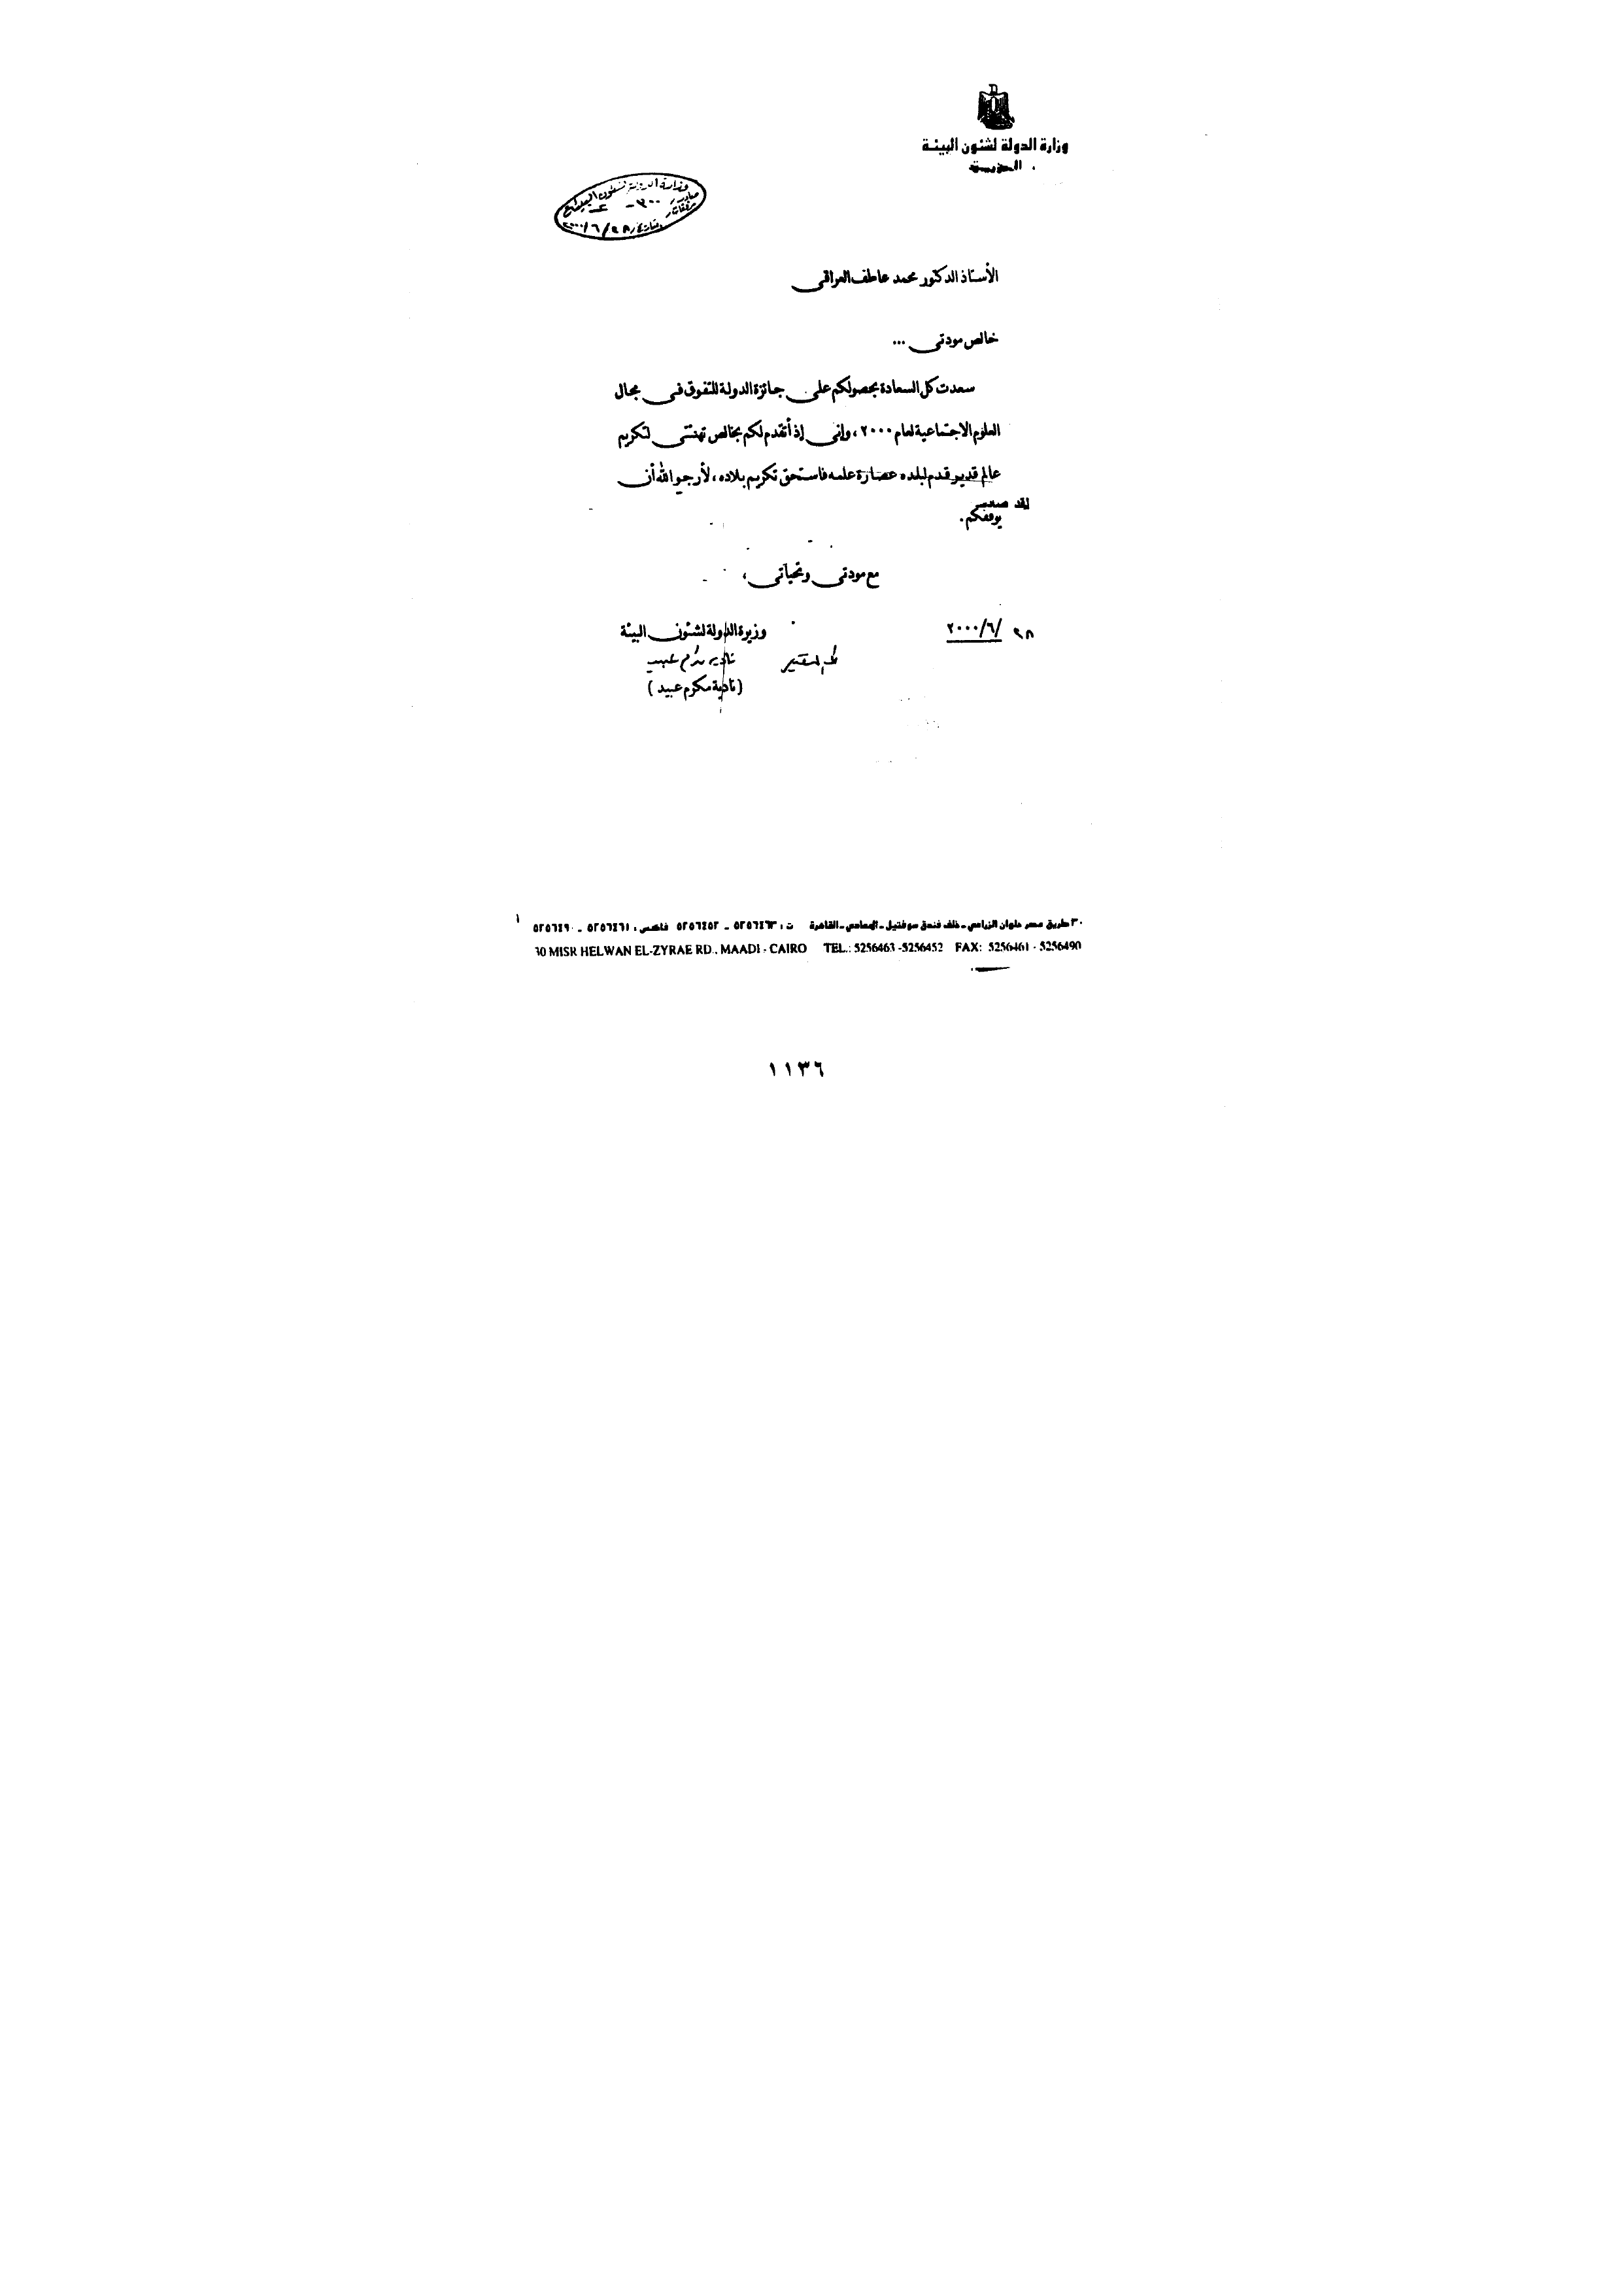 وزارة الدولة لشئون البيئة
الوزيرة
وزارة الدولة لشئون البيئة
صادر / ٣٠٠ -
مرفقات /
بتاريخ ٢٨ / ٦ / ٢٠٠٠
الأستاذ الدكتور محمد عاطف العراقى
خالص مودتى ...
سعدت كل السعادة بحصولكم على جائزة الدولة للتفوق فى مجال
العلوم الاجتماعية لعام ٢٠٠٠، وإنى إذ أتقدم لكم بخالص تهنئتى لتكريم
عالم قدير قدم لبلده عصارة علمه فاستحق تكريم بلاده، لأرجو الله أن
يوفقكم.
مع مودتى وتحياتى،
٢٨ /٦/٢٠٠٠
وزيرة الدولة لشئون البيئة
نادية مكرم عبيد
(نادية مكرم عبيد)
٣٠ طريق مصر حلوان الزراعى - خلف فندق سوفتيل - المعادى - القاهرة ت : ٥٢٥٦٤٦٣ - ٥٢٥٦٤٥٢ فاكس : ٥٢٥٦٤٦١ - ٥٢٥٦٤٩٠
30 MISR HELWAN EL-ZYRAE RD., MAADI - CAIRO TEL.: 5256463 -5256452 FAX: 5256461 - 5256490
١١٣٦